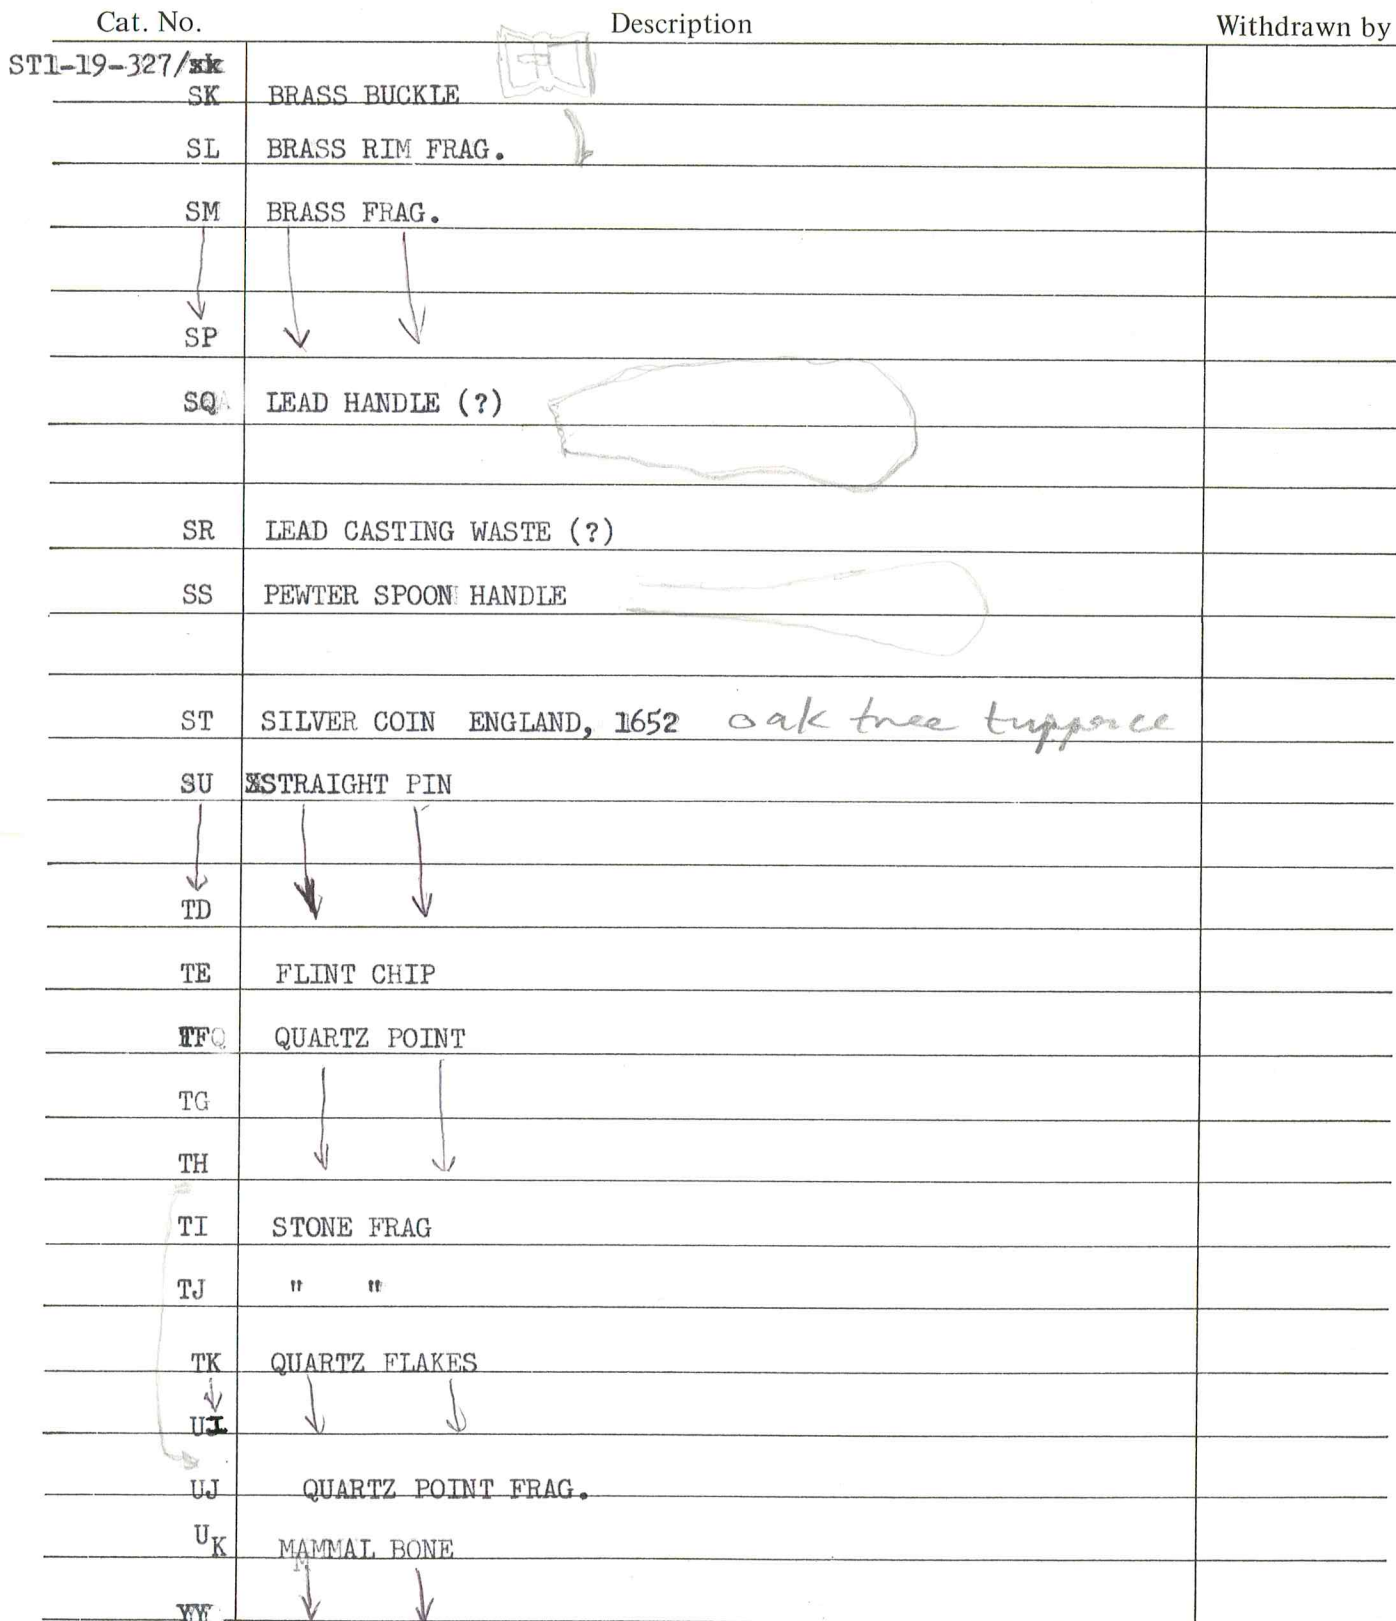 Cat. No. Description Withdrawn by
ST1-19-327/
SK BRASS BUCKLE
SL BRASS RIM FRAG.
SM BRASS FRAG.
SP
SQ LEAD HANDLE (?)
SR LEAD CASTING WASTE (?)
SS PEWTER SPOON HANDLE
ST SILVER COIN ENGLAND, 1652 oak tree tuppence
SU STRAIGHT PIN
TD
TE FLINT CHIP
TF QUARTZ POINT
TG
TH
TI STONE FRAG
TJ " "
TK QUARTZ FLAKES
UI
UJ QUARTZ POINT FRAG.
UK MAMMAL BONE